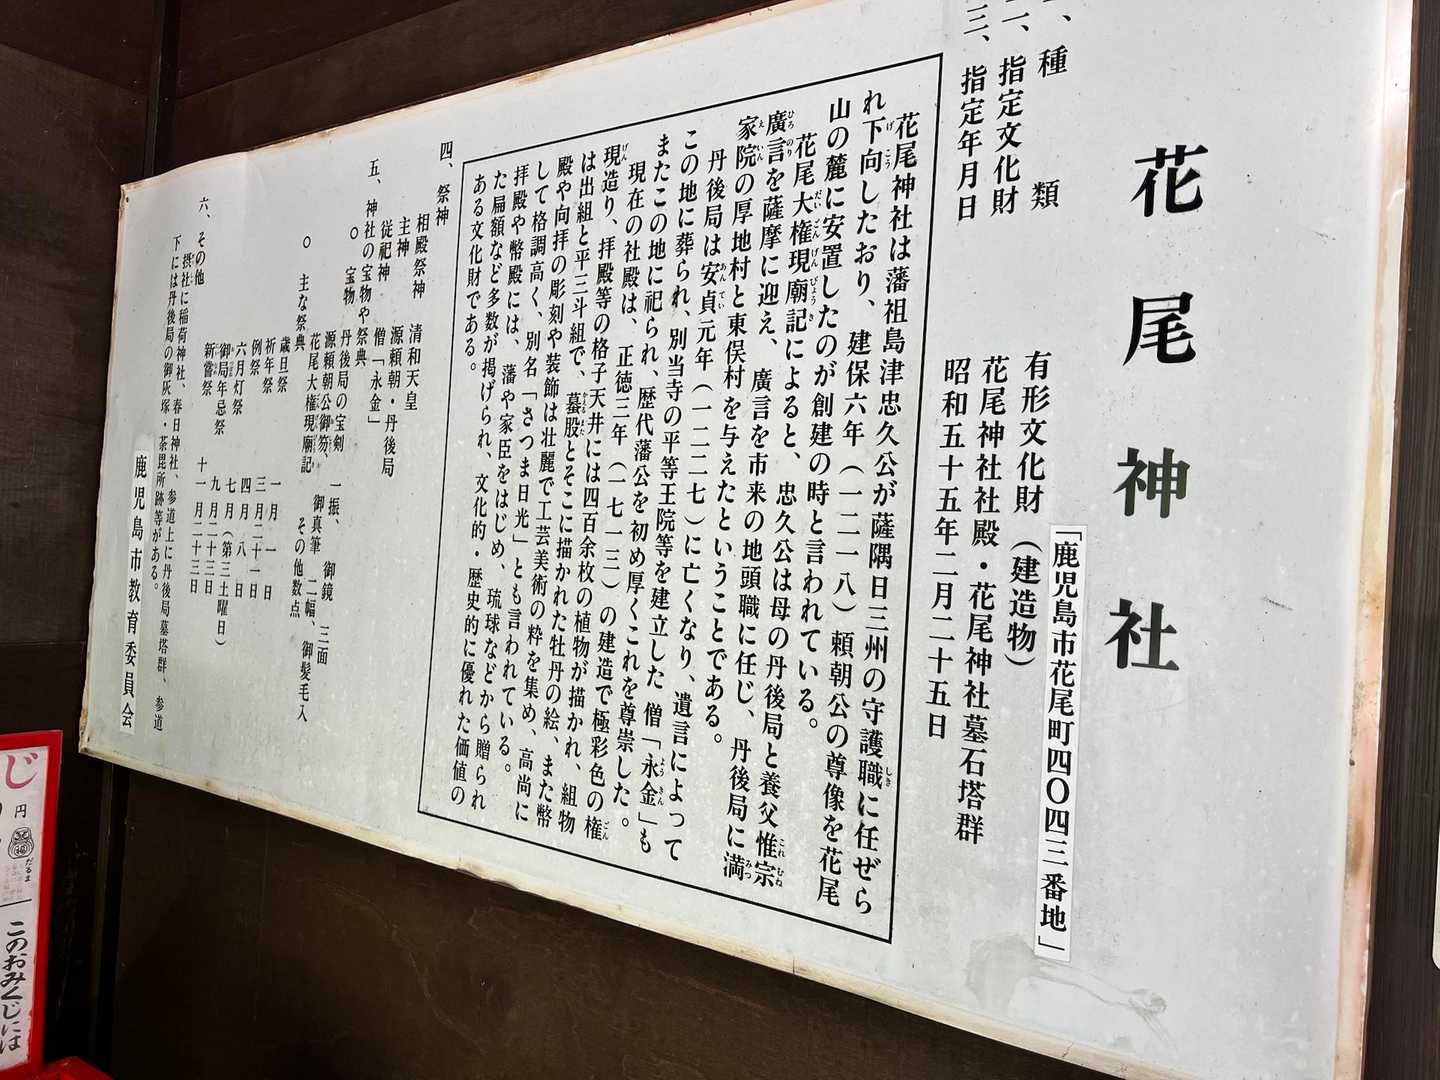 花尾神社
「鹿児島市花尾町四〇四三番地」
一、種類 有形文化財（建造物）
二、指定文化財 花尾神社社殿・花尾神社墓石塔群
三、指定年月日 昭和五十五年二月二十五日
花尾神社は藩祖島津忠久公が薩隅日三州の守護職に任ぜら
れ下向したおり、建保六年（一二一八）頼朝公の尊像を花尾
山の麓に安置したのが創建の時と言われている。
花尾大権現廟記によると、忠久公は母の丹後局と養父惟宗
廣言を薩摩に迎え、廣言を市来の地頭職に任じ、丹後局に満
家院の厚地村と東俣村を与えたということである。
丹後局は安貞元年（一二二七）に亡くなり、遺言によって
この地に葬られ、別当寺の平等王院等を建立した僧「永金」も
またこの地に祀られ、歴代藩公を初め厚くこれを尊崇した。
現在の社殿は、正徳三年（一七一三）の建造で極彩色の権
現造り、拝殿等の格子天井には四百余枚の植物が描かれ、組物
は出組と平三斗組で、蟇股とそこに描かれた牡丹の絵、また幣
殿や向拝の彫刻や装飾は壮麗で工芸美術の粋を集め、高尚に
して格調高く、別名「さつま日光」とも言われている。
拝殿や幣殿には、藩や家臣をはじめ、琉球などから贈られ
た扁額など多数が掲げられ、文化的・歴史的に優れた価値の
ある文化財である。
四、祭神
相殿祭神 清和天皇
主神 源頼朝・丹後局
従祀神 僧「永金」
五、神社の宝物や祭典
○ 宝物 丹後局の宝剣 一振、御鏡 三面
源頼朝公御笏、御真筆 二幅、御髪毛入
花尾大権現廟記 その他数点
○ 主な祭典
歳旦祭 一月一日
祈年祭 三月二十一日
例祭 四月八日
六月灯祭 七月（第三土曜日）
御局年忌祭 九月二十三日
新嘗祭 十一月二十三日
六、その他
摂社に稲荷神社、春日神社、参道上に丹後局墓塔群、参道
下には丹後局の御灰塚・荼毘所跡等がある。
鹿児島市教育委員会
じ
円
だるま
このおみくじには